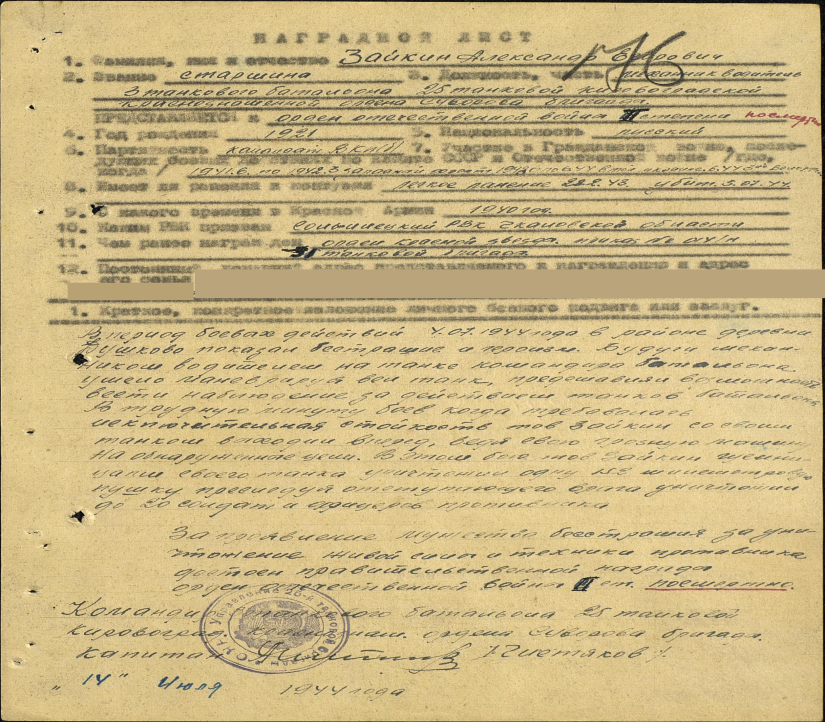 НАГРАДНОЙ ЛИСТ
1. Фамилия, имя и отчество Зайкин Александр Егорович
2. Звание старшина 3. Должность, часть механик водитель
3 танкового батальона 25 танковой Кировоградской
Краснознаменной ордена Суворова бригады
ПРЕДСТАВЛЯЕТСЯ к орден отечественной война II степени посмертно
4. Год рождения 1921 5. Национальность русский
6. Партийность кандидат ВКП(б) 7. Участие в Гражданской войне, после-
дующих боевых действиях по защите СССР и Отечественной войне /где,
когда/ 1941.6. по 1942.3 западной
8. Имеет ли ранения и контузии легкое ранение 22.8.43. убит. 5.07.44.
9. С какого времени в Красной Армии 1940 год.
10. Каким РВК призван РВК Чкаловской области
11. Чем ранее награжден орден красной звезда. приказ №
31 танковой бригада
12. Постоянный домашний адрес представляемого к награждению и адрес
его семьи
1. Краткое, конкретное изложение личного боевого подвига или заслуг.
В период боевых действий 4.07.1944 года в районе деревни
показал бесстрашие и героизм. Будучи механ-
ником водителем на танке командира батальона
умело маневрируя вел танк, предоставляя возможность
вести наблюдение за действием танков батальона
В трудную минуту боев когда требовалась
исключительная стойкость тов Зайкин со своим
танком выходил вперед, ведя свою грозную машину
на обнаруженные цели. В этом бою тов Зайкин
своего танка уничтожил одну
пушку преследуя отступающего врага уничтожил
до 20 солдат и офицеров противника
За проявление мужества бесстрашия за уни-
чтожение живой силы и техники противника
достоен правительственной награда
орден отечественной война II ст. посмертно.
Командир танкового батальона 25 танковой
Кировоград. краснознам. ордена Суворова бригада.
капитан /Чистяков/.
"14" Июля 1944 года